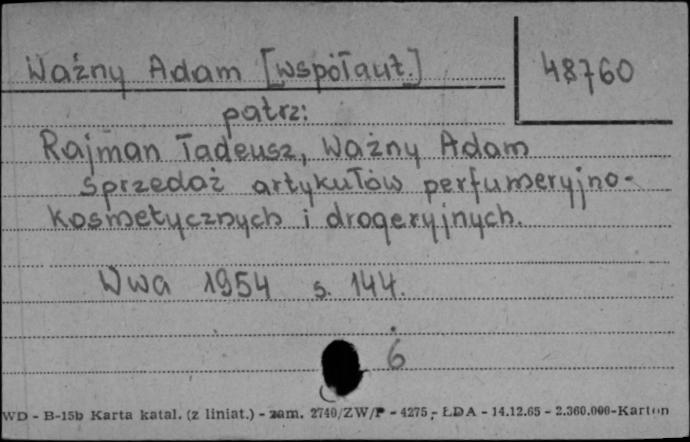 Ważny Adam [współaut.]
48760
patrz:
Rajman Tadeusz, Ważny Adam
Sprzedaż artykułów perfumeryjno-
kosmetycznych i drogeryjnych.
Wwa 1954 s. 144.
6
WD - B-15b Karta katal. (z liniat.) - zam. 2740/ZW/P - 4275 - ŁDA - 14.12.65 - 2.360.000-Karton